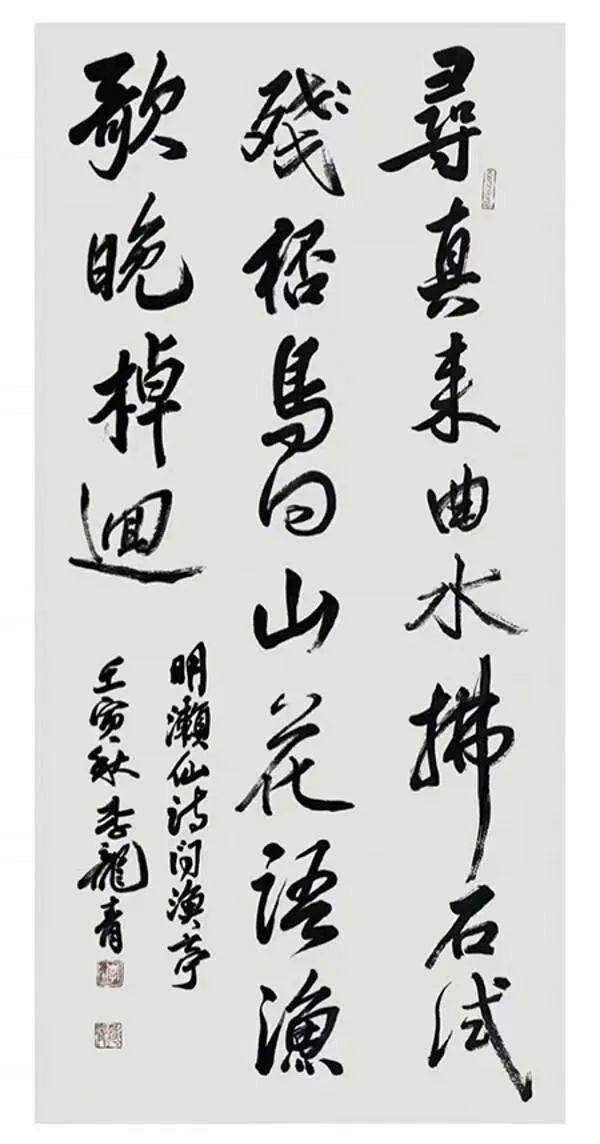 尋真来曲水拂石試
殘桮鳥向山花語漁
歌晚棹迴
明瀨仙詩問漁亭
壬寅秋李龍青